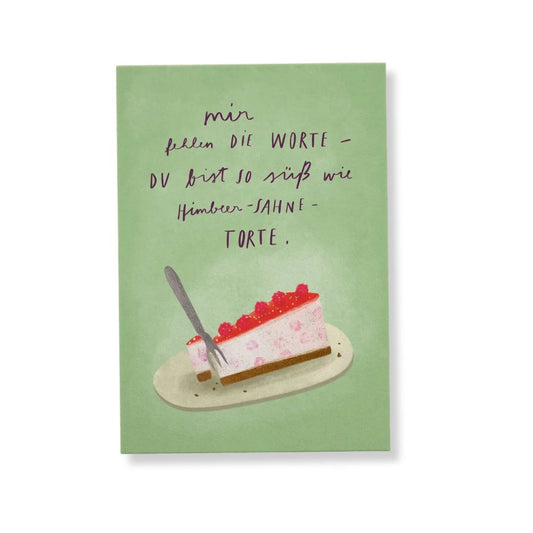 mir
fehlen DIE WORTE –
DU bist so süß wie
Himbeer-SAHNE-
TORTE.